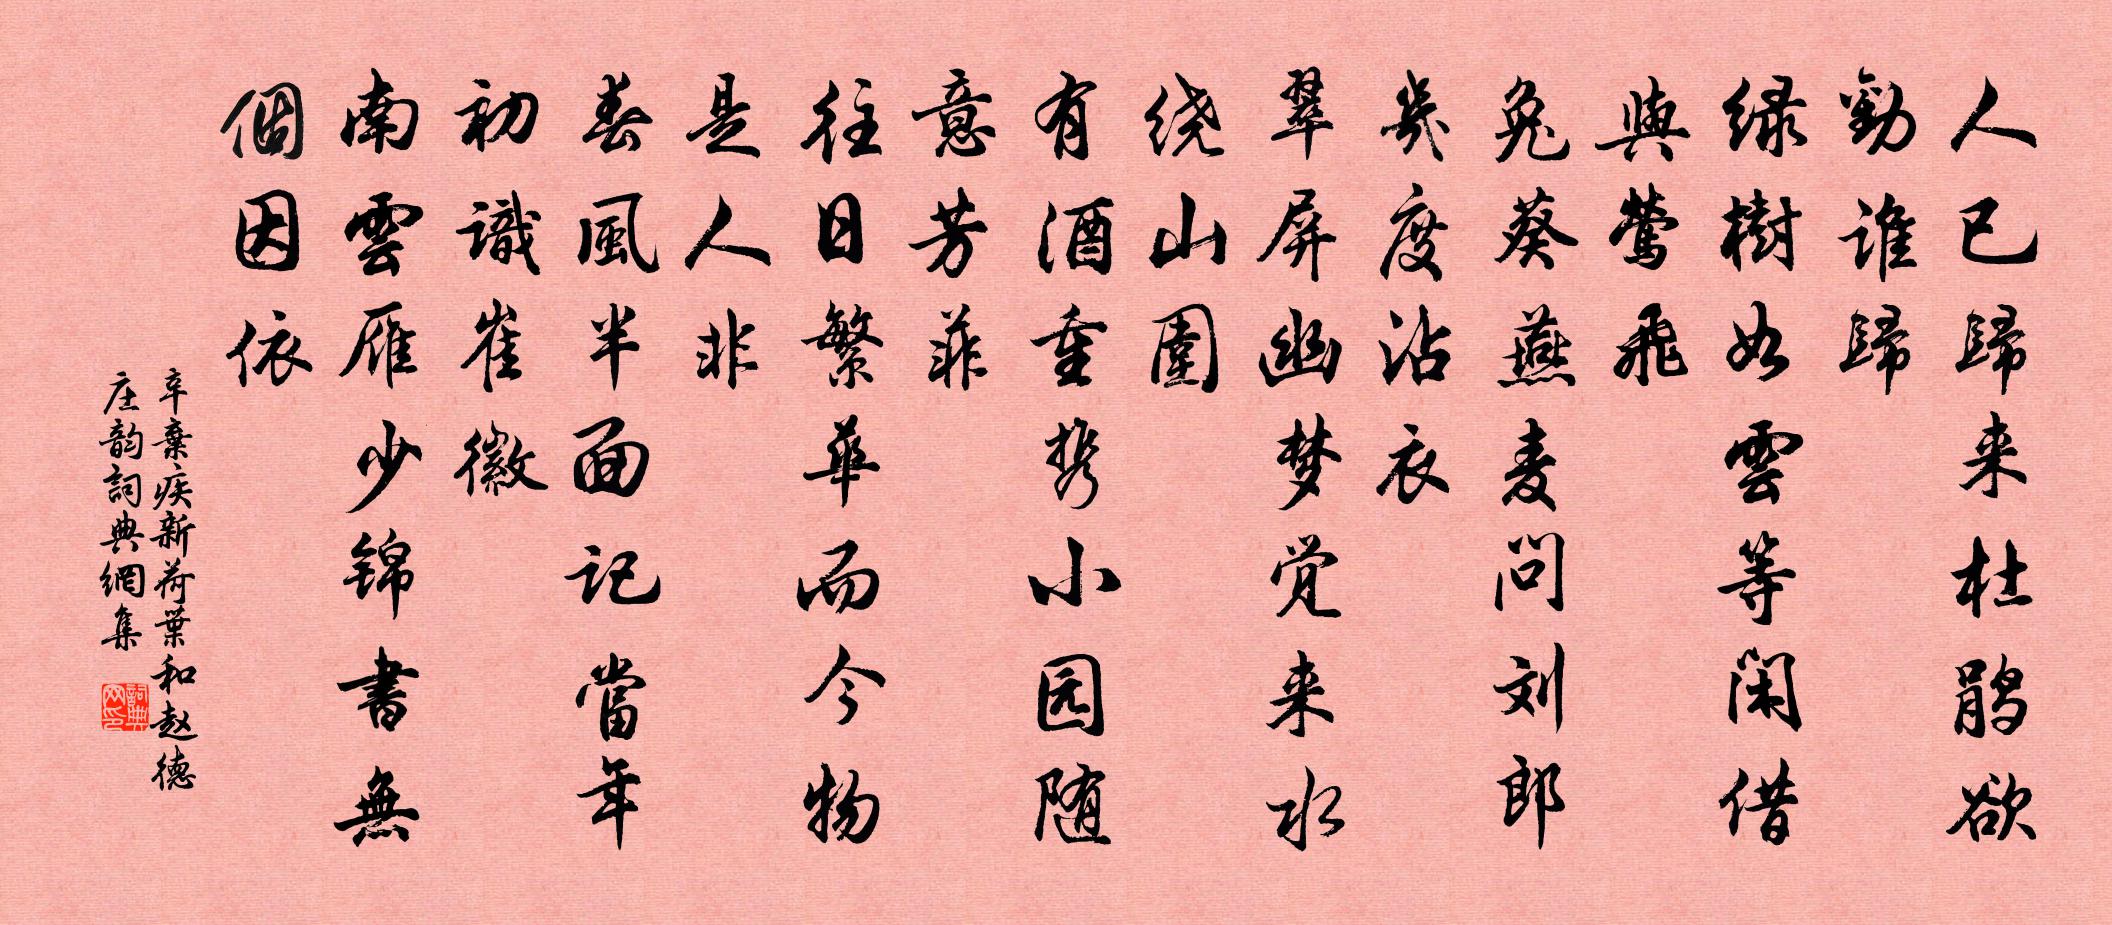 人已歸来杜鹃欲
勸谁歸
绿樹如雲等闲借
與莺飛
兔葵燕麦问刘郎
幾度沾衣
翠屏幽梦觉来水
绕山圍
有酒重携小园随
意芳菲
往日繁華而今物
是人非
春風半面记當年
初識崔徽
南雲雁少锦書無
個因依
辛棄疾新荷葉和赵德
庄韵詞典網集
詞典网印